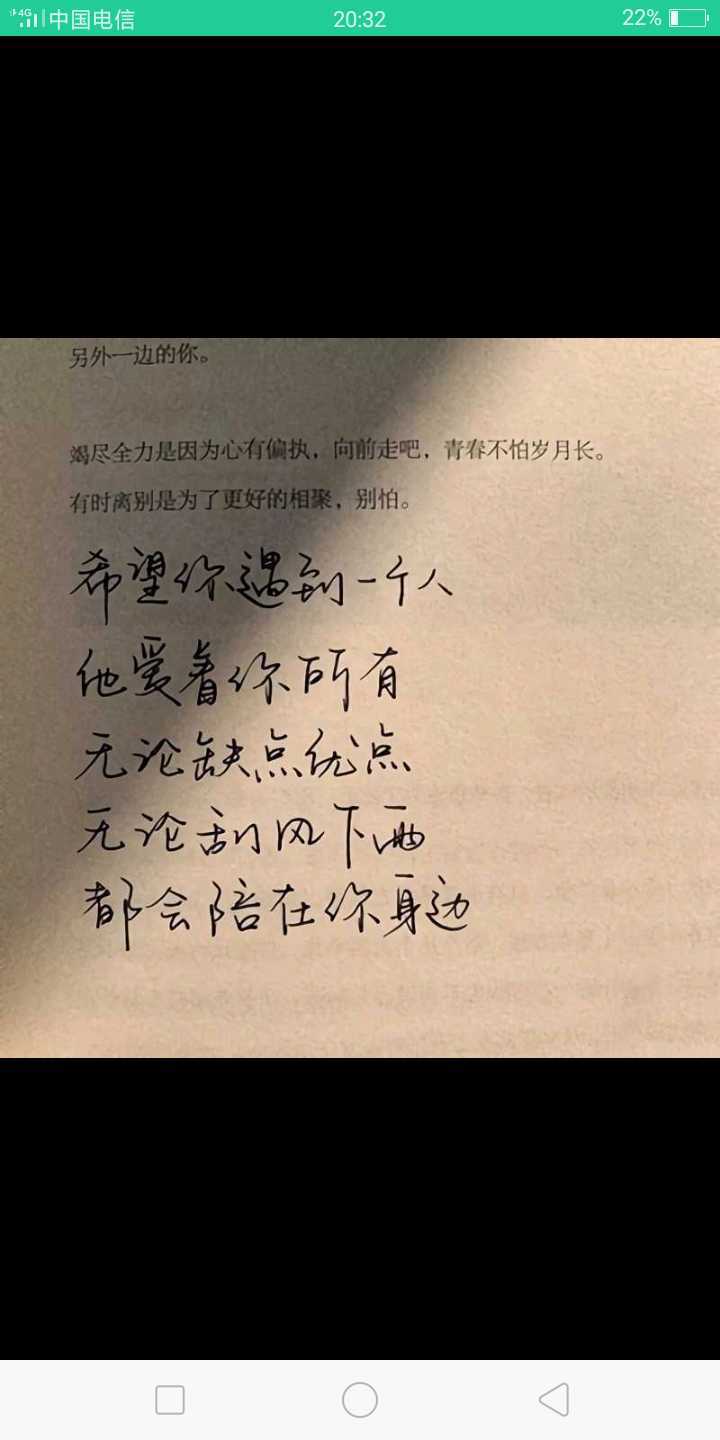 4G 中国电信 20:32 22%
另外一边的你。
竭尽全力是因为心有偏执，向前走吧，青春不怕岁月长。
有时离别是为了更好的相聚，别怕。
希望你遇到一个人
他爱着你所有
无论缺点优点
无论刮风下雨
都会陪在你身边